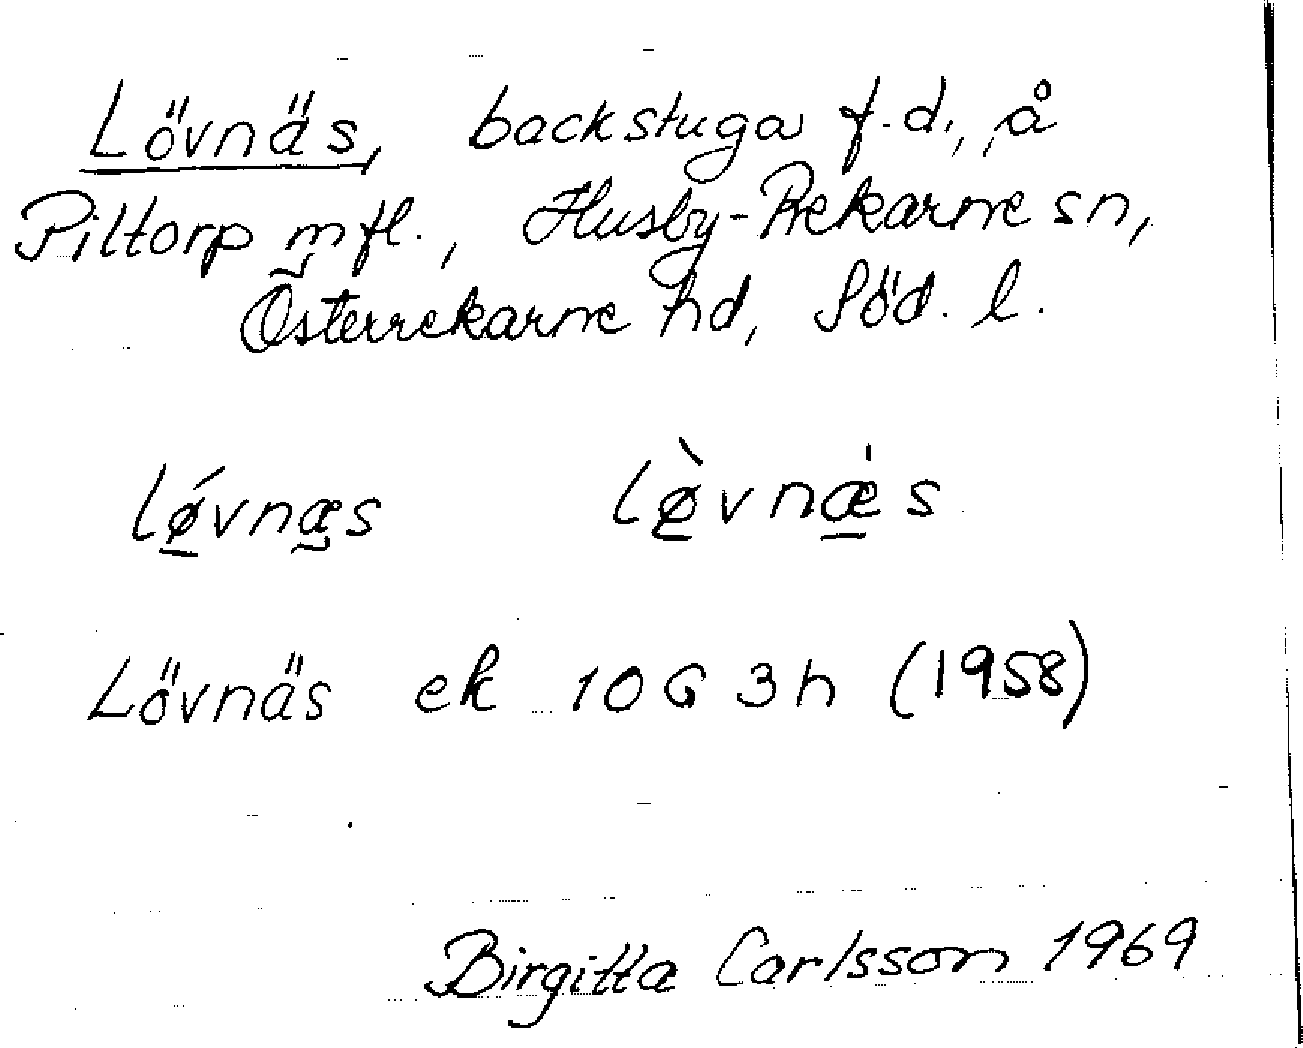 Lövnäs, backstuga f.d., å
Piltorp mfl., Husby-Rekarne sn,
Österrekarne hd, Söd. l.
lǿvnæs lø̀vnæ̍s
Lövnäs ek 10G 3h (1958)
Birgitta Carlsson 1969